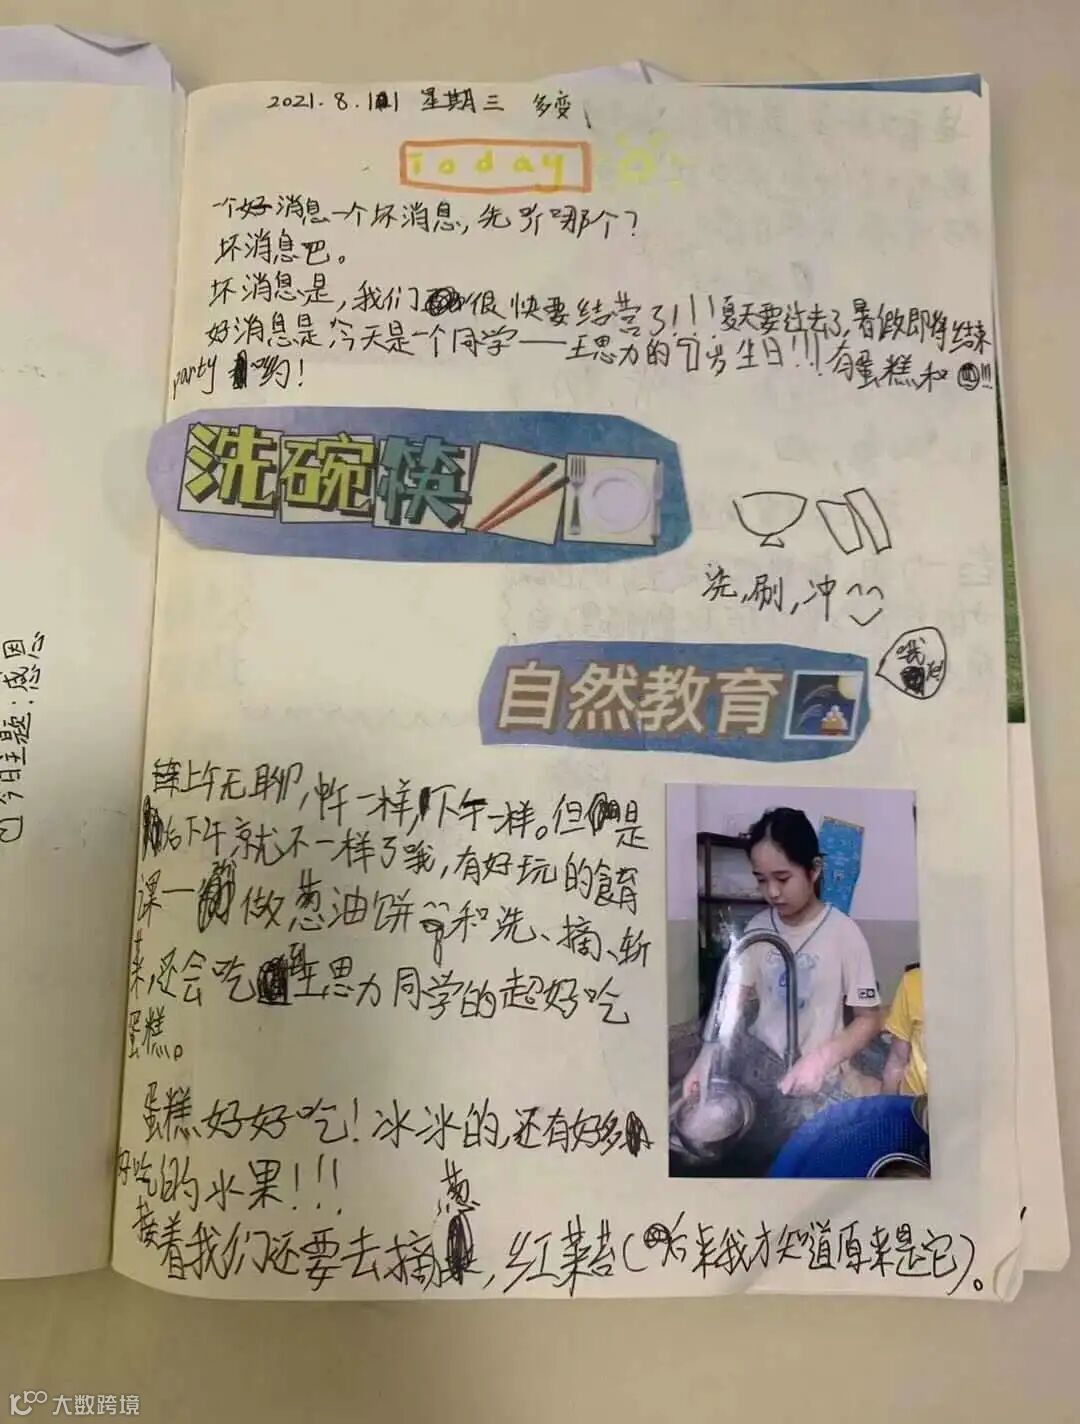 2021.8.11 星期三 多变
Today
一个好消息一个坏消息,先听哪个?
坏消息吧。
坏消息是,我们很快要结营了!!!夏天要过去了,暑假即将结束
好消息是今天是一个同学——王思力的 岁生日!!!有蛋糕和
party 哟!
洗碗筷
洗,刷,冲
自然教育
哦
上午无聊,中午一样,下午一样。但是
后下午就不一样了哦,有好玩的食育
课——做葱油饼 和洗、摘、斩
菜,还会吃到王思力同学的超好吃
蛋糕。
蛋糕好好吃!冰冰的,还有好多
好吃的水果!!!
接着我们还要去摘葱,红菜苔(后来我才知道原来是它)。
今日主题:感恩
大数跨境